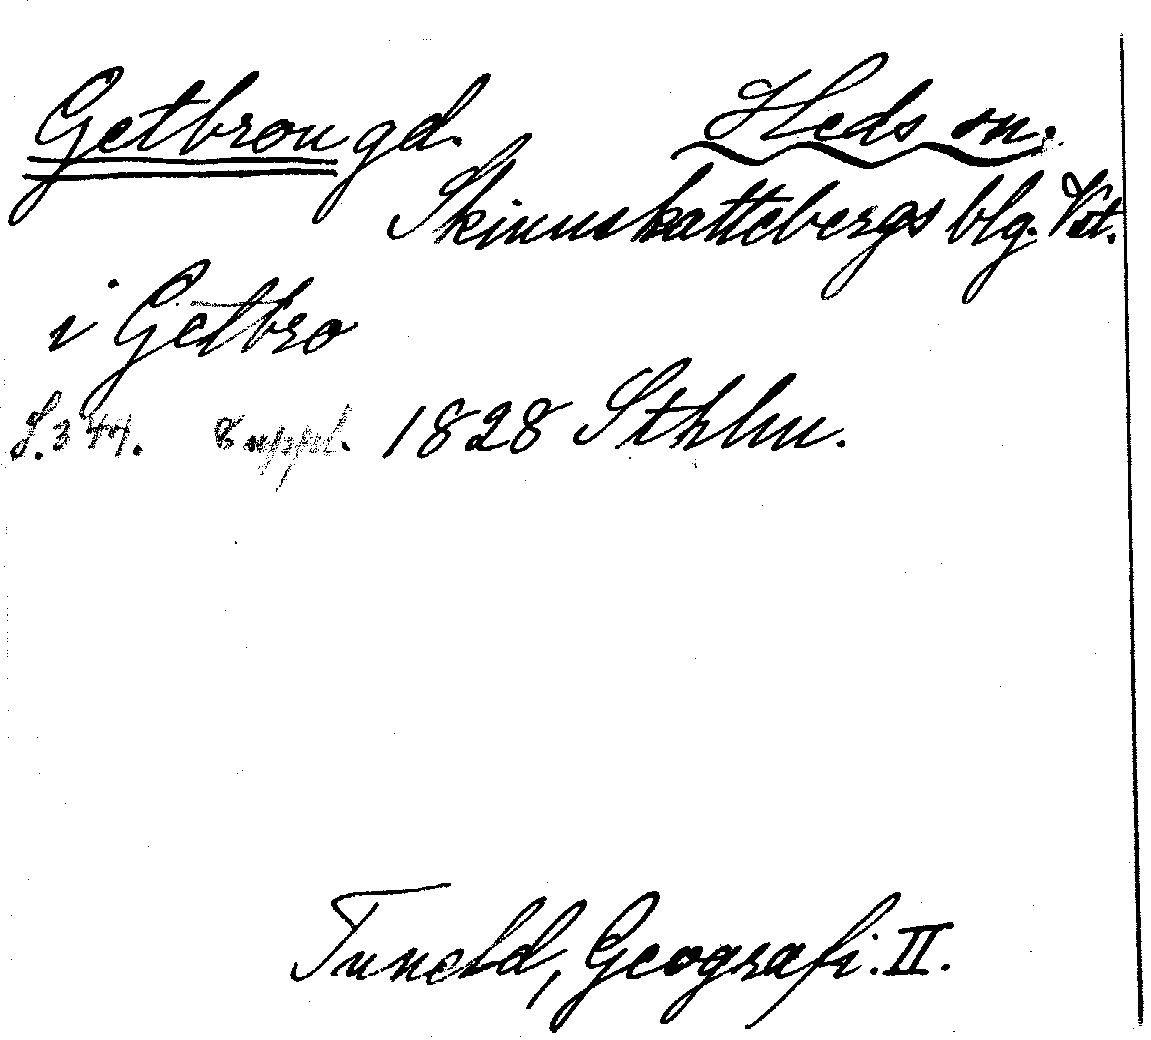 Getbron gd. Heds sn.
Skinnskattebergs blg. Vst.
i Getbro
S. 344. 8 uppl. 1828 Sthlm.
Tuneld, Geografi. II.